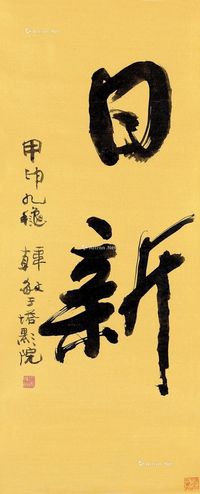 日新
甲申九穐
韩敏于塔影院